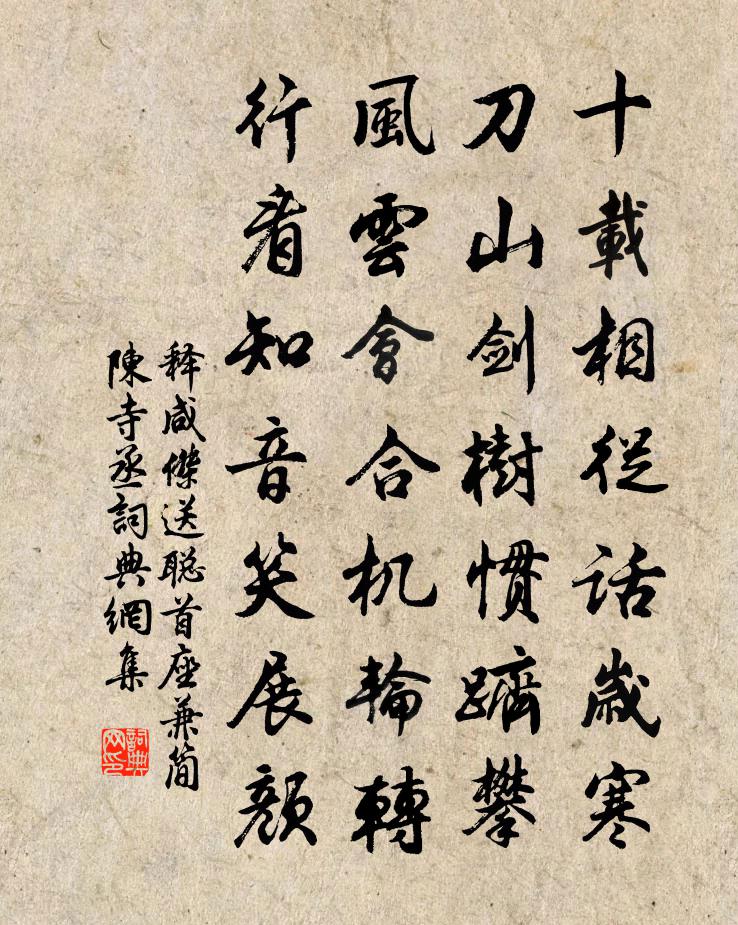 十載相從話歲寒
刀山劍樹慣躋攀
風雲會合机輪轉
行看知音笑展顔
释咸傑送聪首座兼简
陳寺丞詞典網集
詞典网印